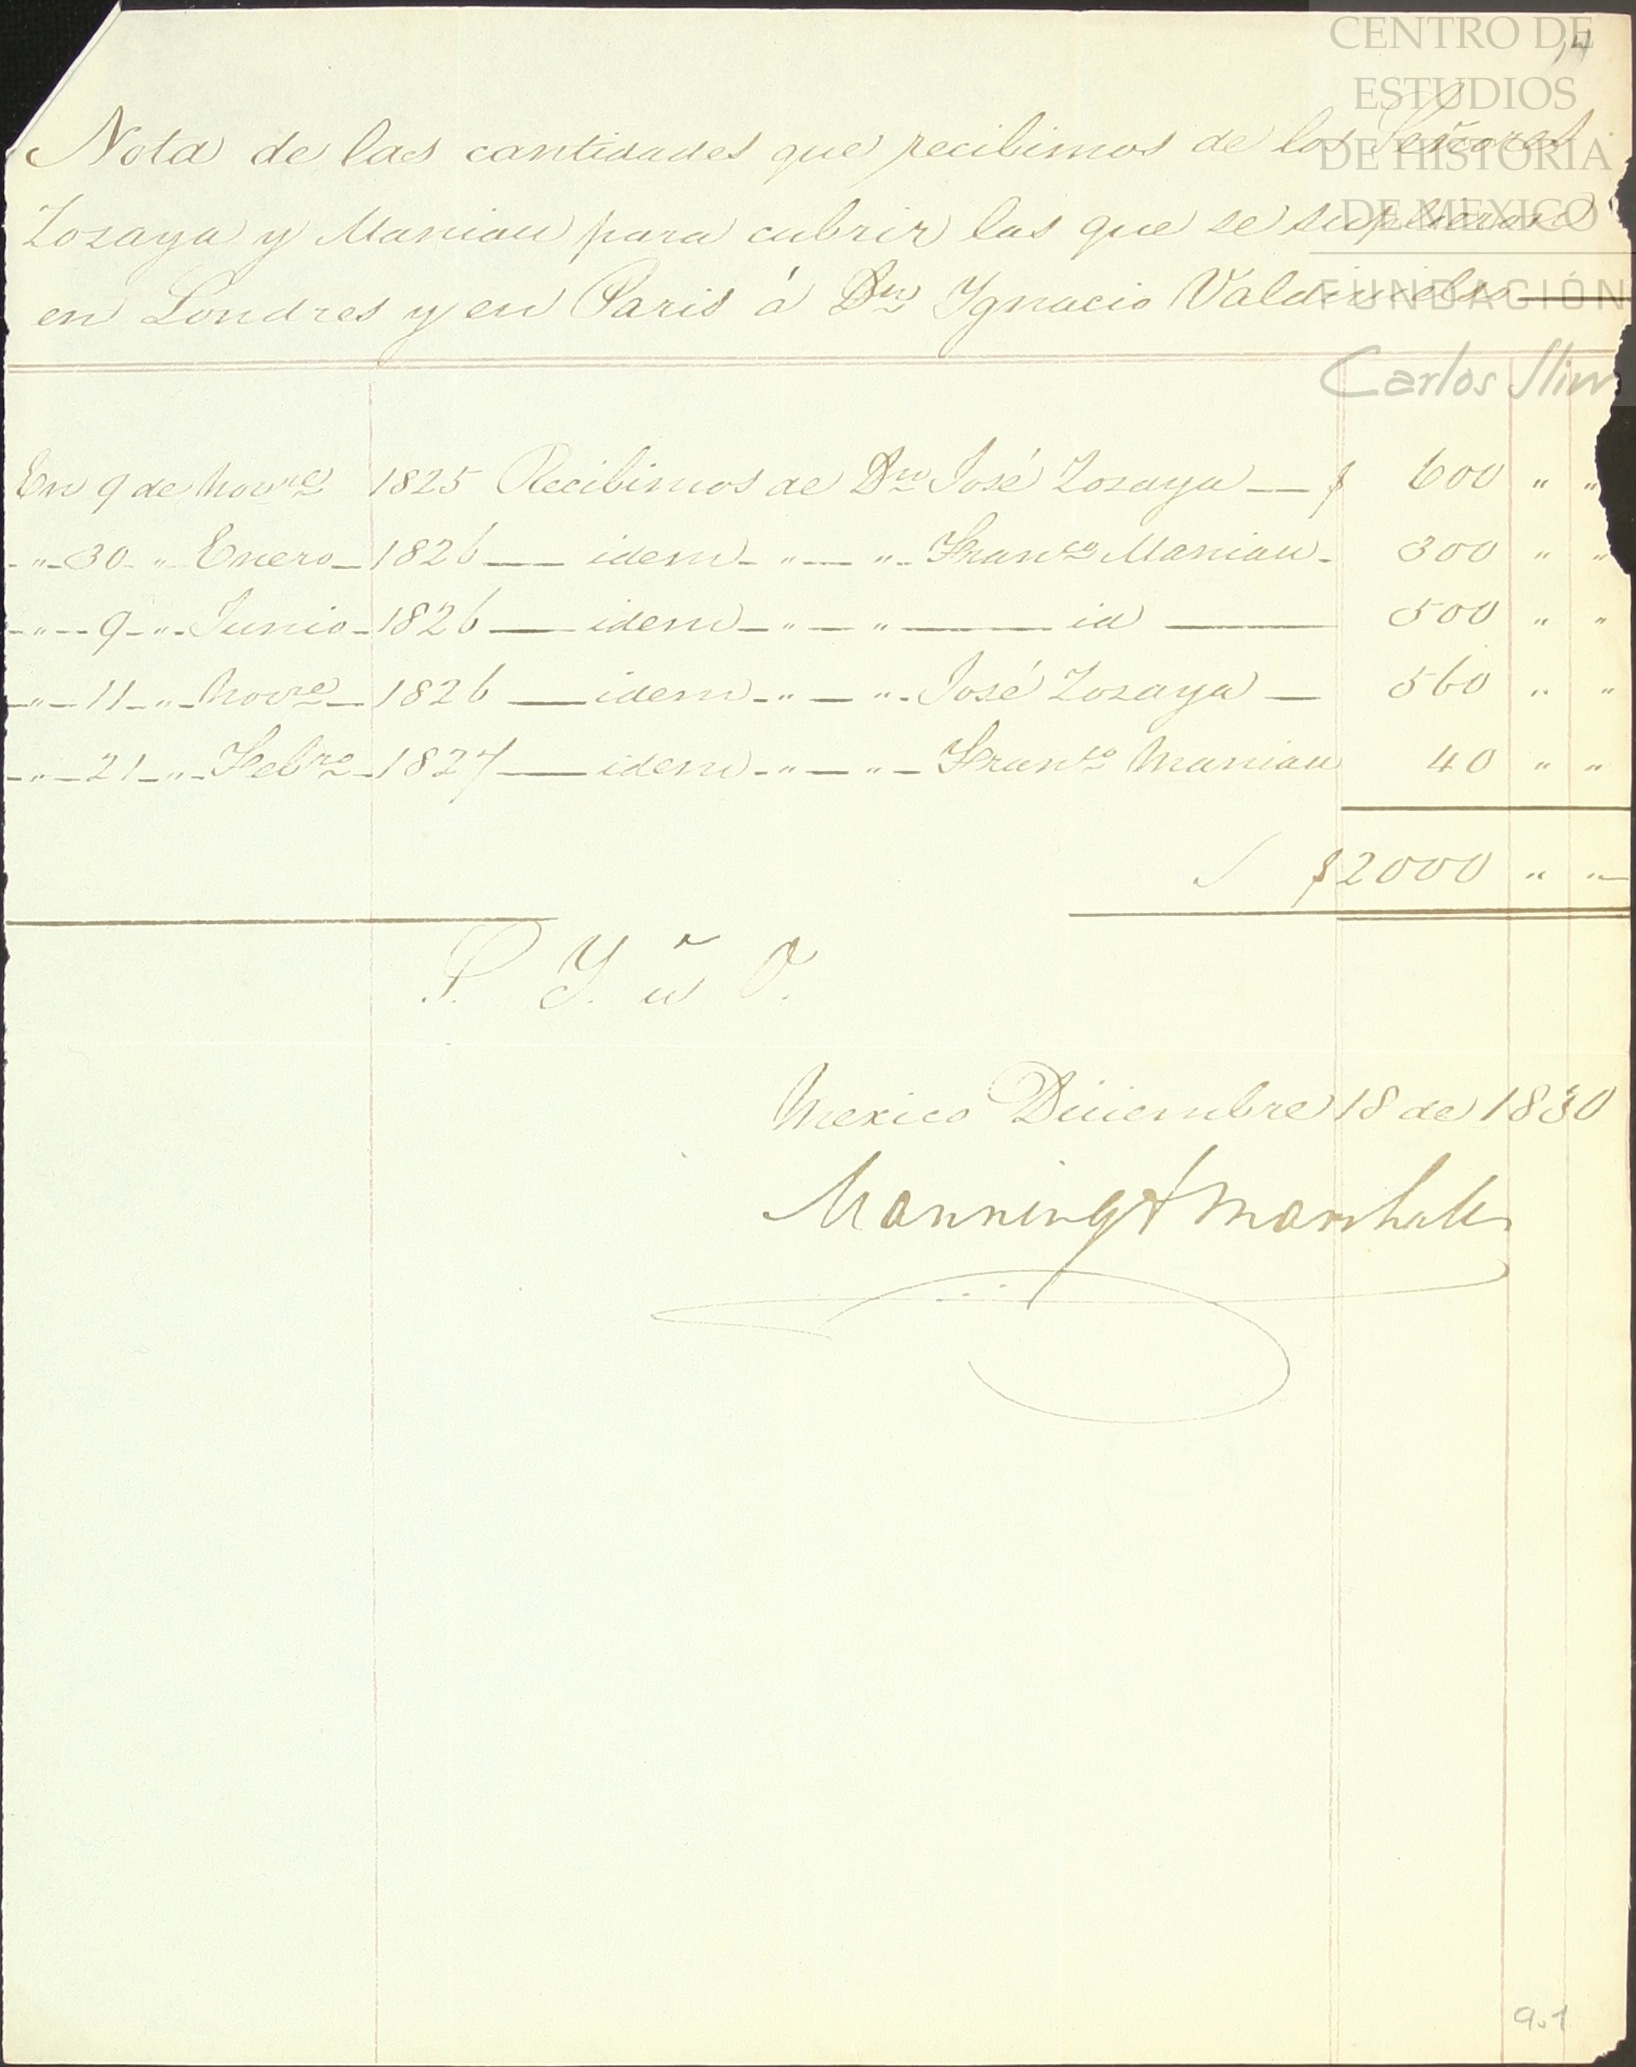 14
CENTRO DE
ESTUDIOS
DE HISTORIA
DE MÉXICO
FUNDACIÓN
Carlos Slim
Nota de las cantidades que recibimos de los Señores
Zozaya y Maniau para cubrir las que se suplieron
en Londres y en Paris á Dn Ygnacio Valdivielso
En 9 de Novre 1825 Recibimos de Dn José Zozaya — $ 600 " "
" 30 " Enero 1826 — idem " " Franco Maniau 300 " "
" 9 " Junio 1826 — idem " " — id — 500 " "
" 11 " Novre 1826 — idem " " José Zozaya — 560 " "
" 21 " Febro 1827 — idem " " Franco Maniau 40 " "
$ 2000 " "
Mexico Diciembre 18 de 1830
Manning & Marshall
9.1